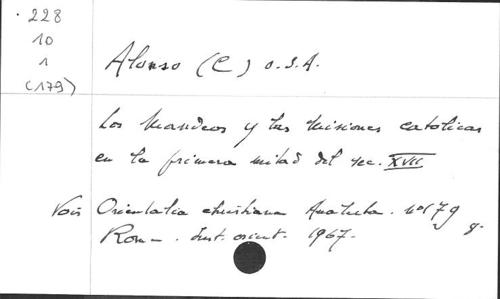 228
10
1
(179)
Alonso (C) O.S.A.
Los Mandeos y las Misiones catolicas
en la primera mitad del sec. XVII
Vois Orientalia christiana Analecta. n°179
Roma. Inst. orient. 1967. 8°